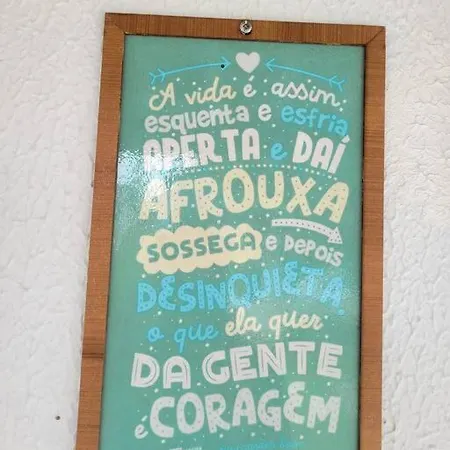 A vida é assim
esquenta e esfria
APERTA e DAÍ
AFROUXA
SOSSEGA e DEPOIS
DESINQUIETA
o que ela quer
DA GENTE
é CORAGEM